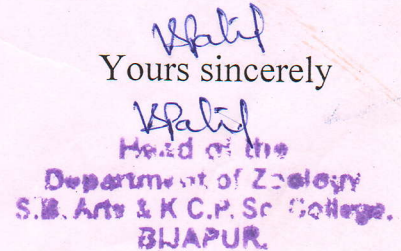 VSPatil
Yours sincerely
VSPatil
Head of the
Department of Zoology
S.B. Arts & K C.P. Sc College.
BIJAPUR.